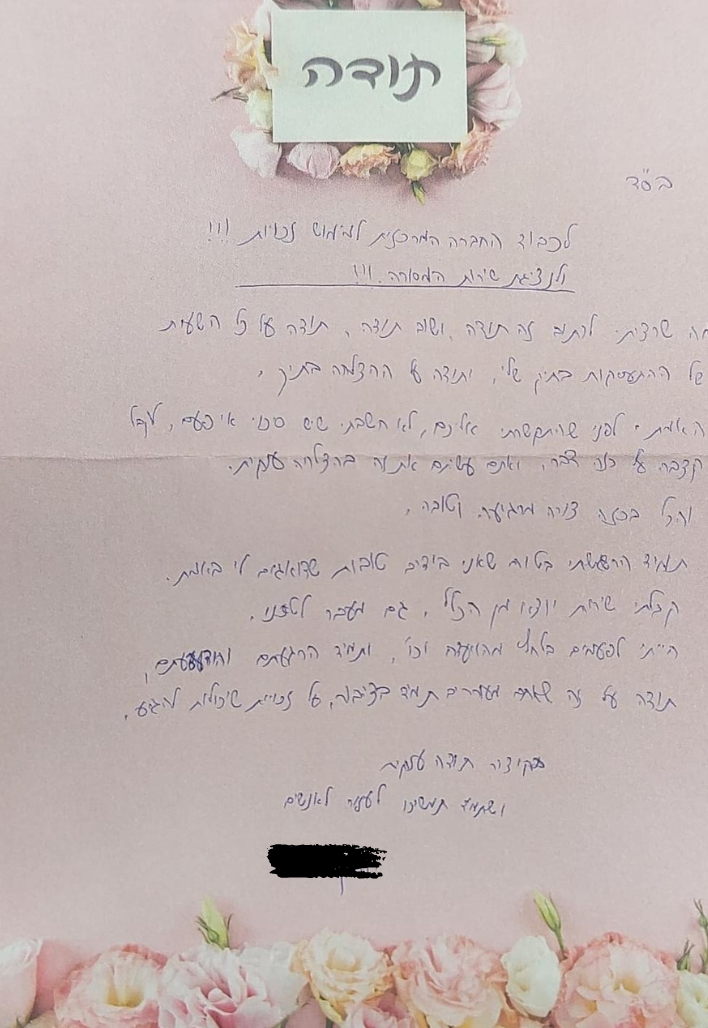 תודה
בס"ד
לכבוד החברה המרכזית למימוש זכויות !!!
ולנציגת שירות המסורה !!!
מה שרציתי לכתוב זה תודה, ושוב תודה, תודה על כל השעות
של ההתעסקות בתיק שלי, ותודה על ההצלחה בתיק,
האמת, לפני שהתקשרתי אליכם, לא חשבתי שיש סיכוי אי פעם, לקבל
קצבה על כזה דבר, ואתם עשיתם את זה בהצלחה ענקית.
והכל בכזאת צורה מרגיעה וטובה,
תמיד הרגשתי בטוח שאני בידיים טובות שדואגים לי באמת.
קבלתי שירות יוצא מן הכלל, גם מעבר לטלפון,
הייתי לפעמים בלחץ מהוועדות וכו', ותמיד הרגעתם
תודה על זה שאתם מעוררים תמיד בציבור, על זכויות שיכולות להגיע,
בקיצור תודה ענקית
ושתמיד תמשיכו לעזור לאנשים